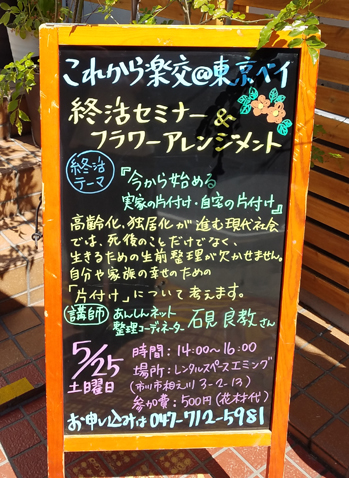 これから楽交@東京ベイ
終活セミナー &
フラワーアレンジメント
終活テーマ
『今から始める
実家の片付け・自宅の片付け』
高齢化、独居化が進む現代社会
では、死後のことだけでなく、
生きるための生前整理が欠かせません。
自分や家族の幸せのための
「片付け」について考えます。
講師 あんしんネット
整理コーディネーター 石見良教さん
5/25
土曜日
時間:14:00〜16:00
場所:レンタルスペースエミング
(市川市相之川3-2-13)
参加費:500円(花材代)
お申し込みは047-712-5981